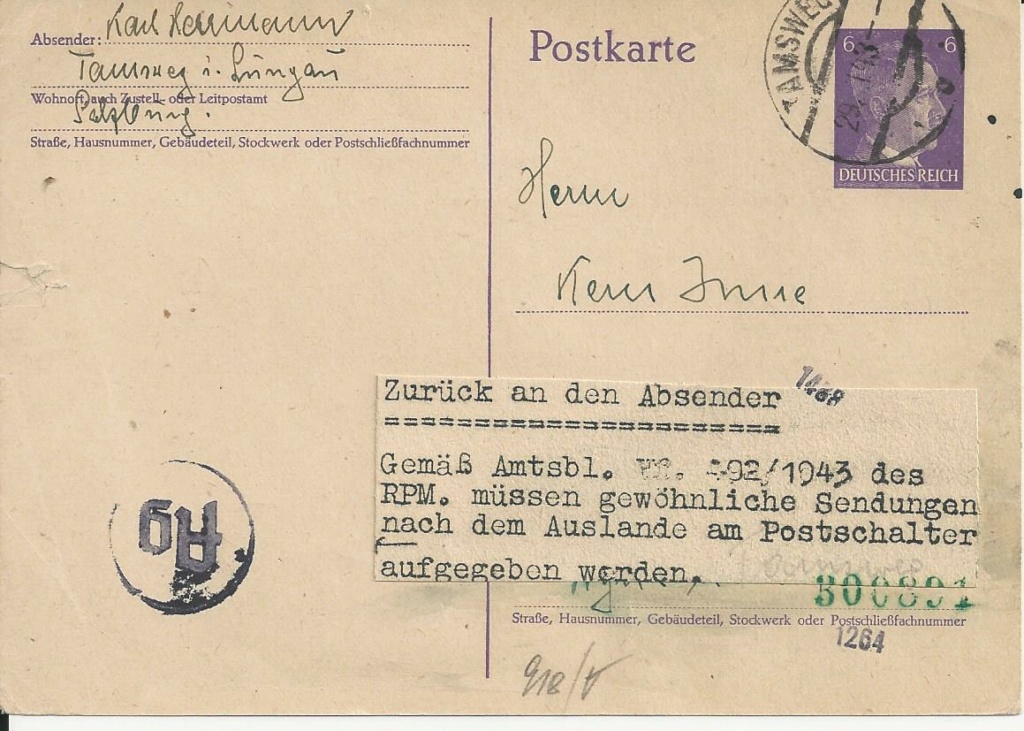 Absender: Karl
Tamsweg i. Lungau
Wohnort, auch Zustell- oder Leitpostamt
Salzburg.
Straße, Hausnummer, Gebäudeteil, Stockwerk oder Postschließfachnummer
Postkarte
6 6
TAMSWEG
DEUTSCHES REICH
Herrn
Zurück an den Absender
1468
=======================
Gemäß Amtsbl. 492/1943 des
RPM. müssen gewöhnliche Sendungen
nach dem Auslande am Postschalter
aufgegeben werden.
300891
Straße, Hausnummer, Gebäudeteil, Stockwerk oder Postschließfachnummer
1264
Ag